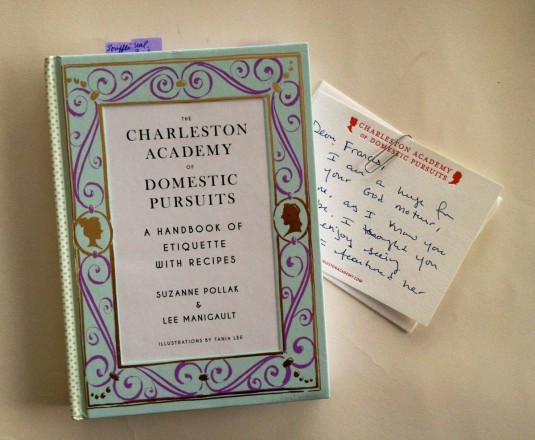 THE
CHARLESTON
ACADEMY
OF
DOMESTIC
PURSUITS
A HANDBOOK OF
ETIQUETTE
WITH RECIPES
SUZANNE POLLAK
&
LEE MANIGAULT
ILLUSTRATIONS BY TANIA LEE
CHARLESTON ACADEMY
OF DOMESTIC PURSUITS
Dear Francis,
I am a huge fan
your God mother,
as I know you
I thought you
enjoy seeing
featured her